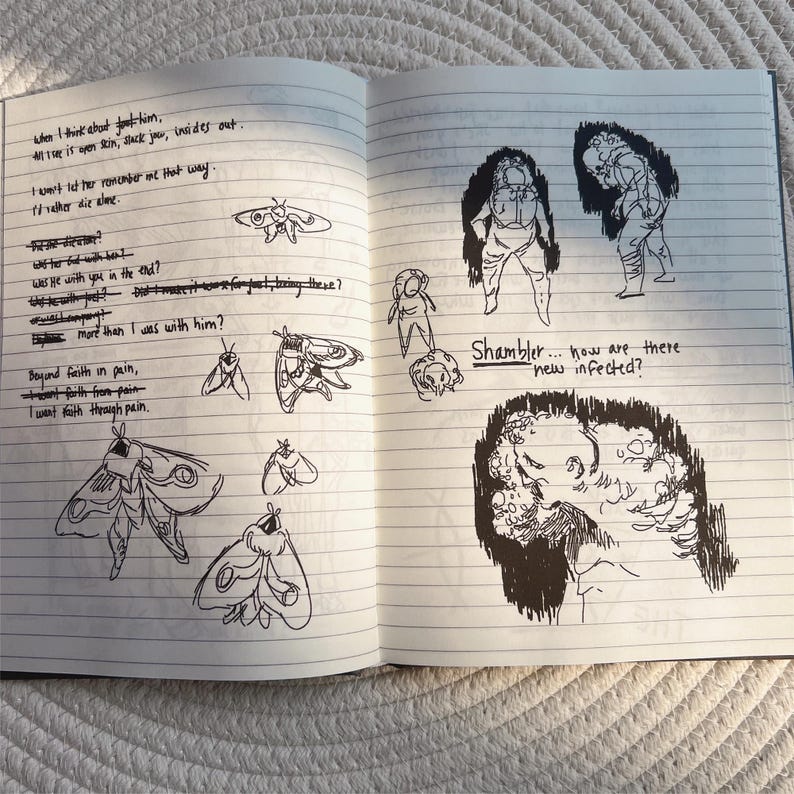 When I think about Joel him,
All I see is open skin, slack jaw, insides out.
I won't let her remember me that way.
I'd rather die alone.
Did she die alone?
Was her God with her?
Was He with you in the end?
Was he with Joel? Did I make it worse for Joel, being there?
or was I company?
more than I was with him?
Beyond faith in pain,
I want faith from pain
I want faith through pain.
Shambler... how are there
new infected?